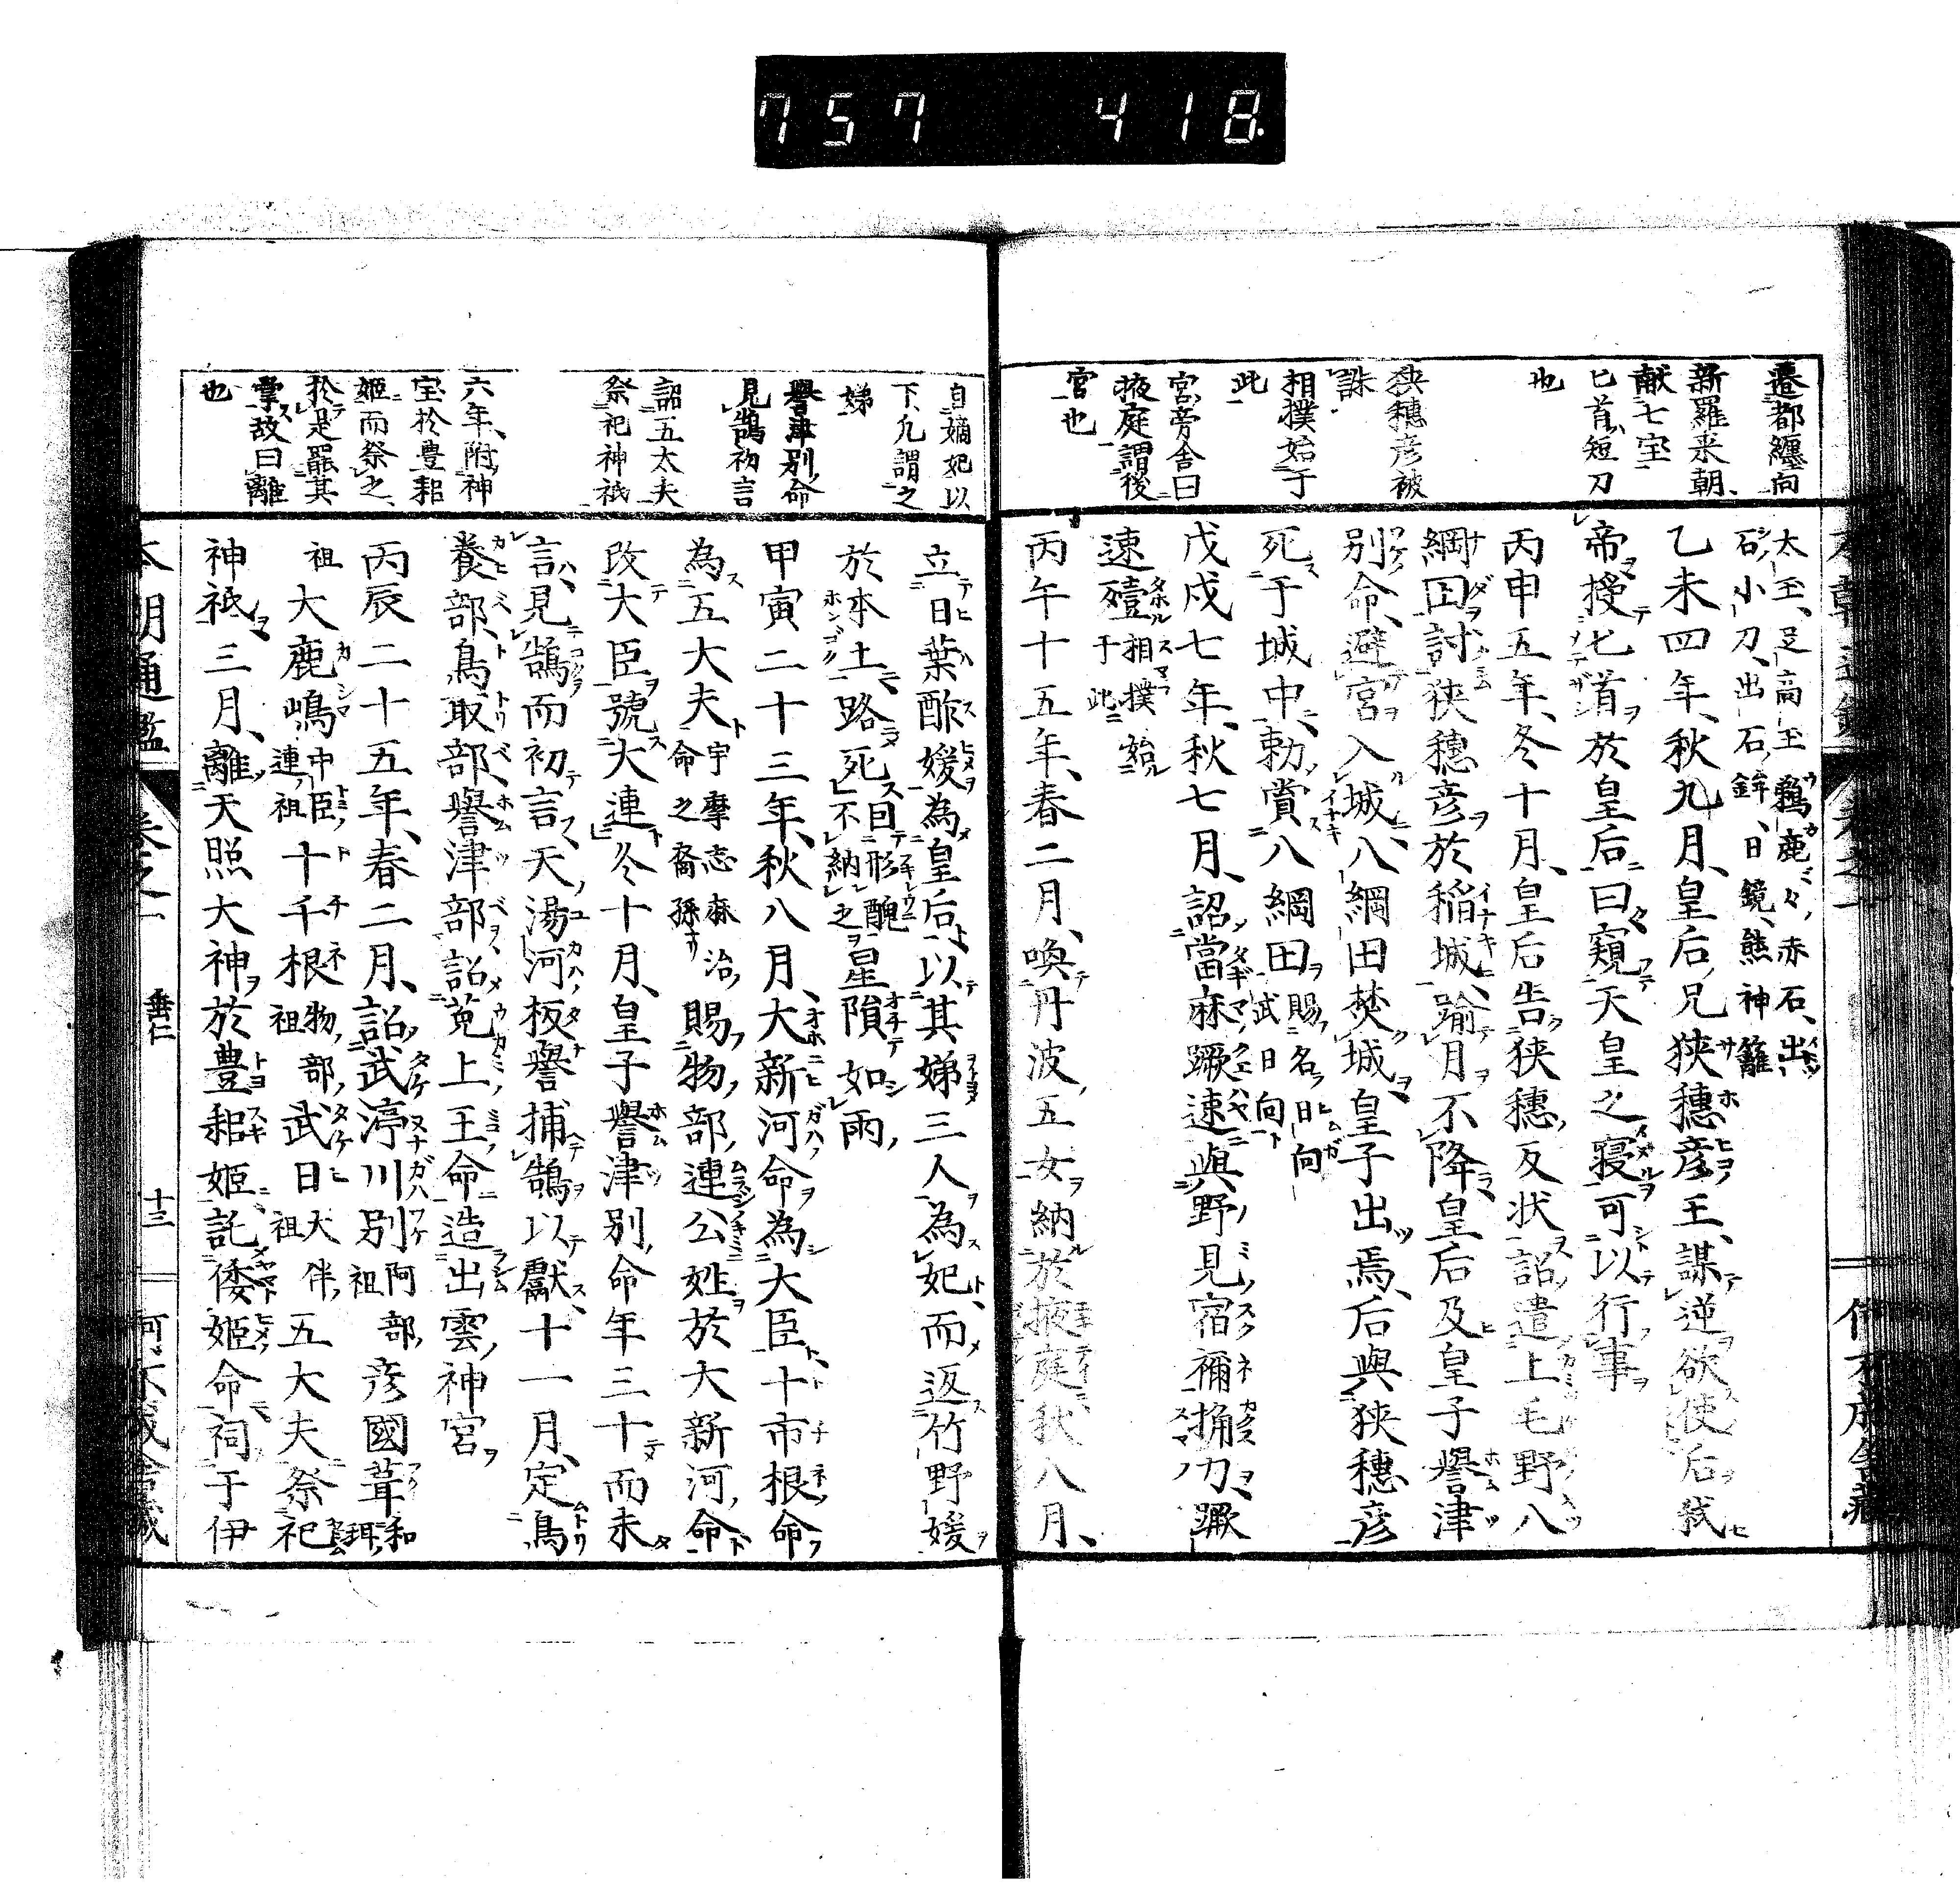 757 418
遷都纏向
新羅来朝、
献七宝
匕首、短刀
也
狹穗彦被
誅
相撲始于
此
宮、旁舎曰
掖庭、謂後
宮也
太玉、足高玉、鵜鹿々、赤石、出
石、小刀、出石、鉾、日鏡、熊神籬
乙未四年、秋九月、皇后、兄狹穗彦王、謀逆欲使后弑
帝授匕首於皇后曰、窺天皇之寝可以行事
丙申五年、冬十月、皇后告狹穗、反状詔、遣上毛野、八
綱田討狹穗彦於稲城、踰月不降、皇后及皇子譽津
別、命、避宮入城、八綱田焚城、皇子出焉、后與狹穗彦
死于城中、勅、賞八綱田賜名日向武日向
戊戌七年、秋七月、詔當麻蹶速與野見宿禰捔力、蹶
速殪相撲始于此
丙午十五年、春二月、喚丹波、五女納於掖庭、秋八月、
自嫡妃以
下、凢謂之
娣
譽津別、命
見鵠初言
詔五太夫
祭祀神祇
六年、附神
宝於豊耜
姫而祭之、
於是罷其
掌故曰離
也
立日葉酢媛為皇后、以其娣三人為妃、而返竹野媛
於本土、路死曰形醜不納之星隕如雨、
甲寅二十三年、秋八月、大新河命為大臣、十市根命
為五大夫宇摩志麻治、命之裔孫賜物部、連公姓於大新河、命
改大臣號大連冬十月、皇子譽津別、命年三十而未
言、見鵠而初言、天湯河板譽、捕鵠以獻、十一月、定鳥
養部、鳥取部、譽津部、詔菟上、王、命造出雲、神宮
丙辰二十五年、春二月、詔武渟川別阿部、祖彦國葺和珥、
祖大鹿嶋中臣、連祖十千根物部、祖武日大伴、祖五大夫祭祀
神祇、三月、離天照大神於豊耜姫託倭姫命祠于伊
本朝通鑑
卷之一
垂仁
十三